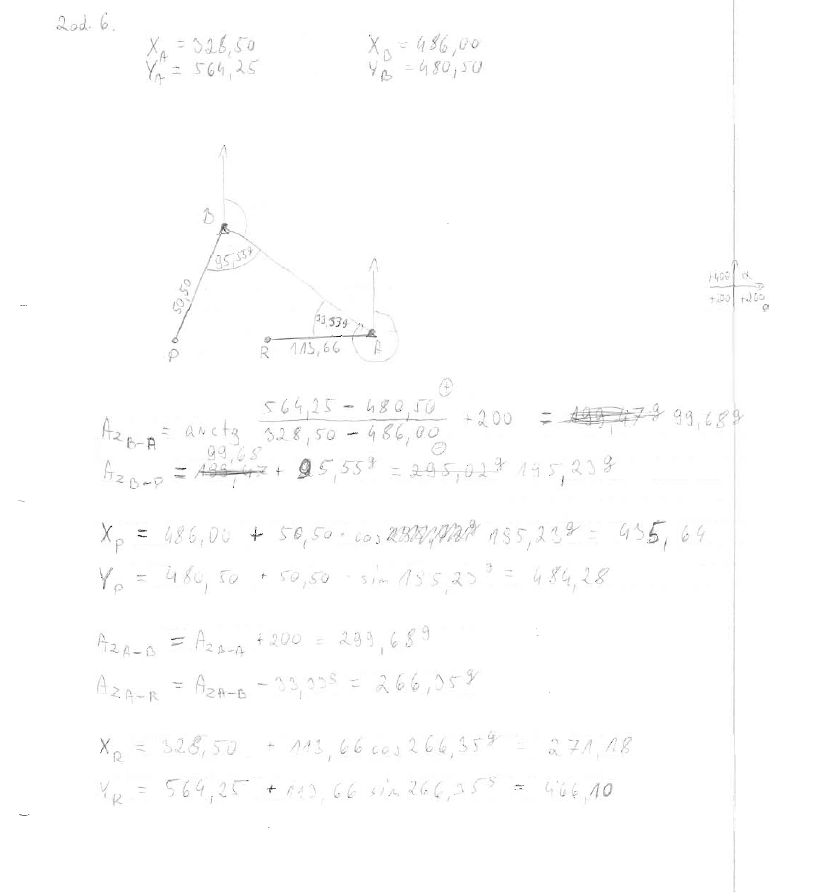 Zad. 6.
X_A = 328,50 X_B = 486,00
Y_A = 564,25 Y_B = 480,50
B
95,55g
50,50
+400 α
+200 +200
33,33g
P R 113,66 A
Az_B-A = arctg (564,25 - 480,50)/(328,50 - 486,00) +200 = 199,47g 99,68g
⊕
⊖
99,68
Az_B-P = 199,47 + 95,55g = 295,02g 195,23g
X_P = 486,00 + 50,50 · cos 195,23g = 435,64
Y_P = 480,50 + 50,50 · sin 195,23g = 484,28
Az_A-B = Az_B-A +200 = 299,68g
Az_A-R = Az_A-B - 33,33g = 266,35g
X_R = 328,50 + 113,66 cos 266,35g = 271,18
Y_R = 564,25 + 113,66 sin 266,35g = 466,10